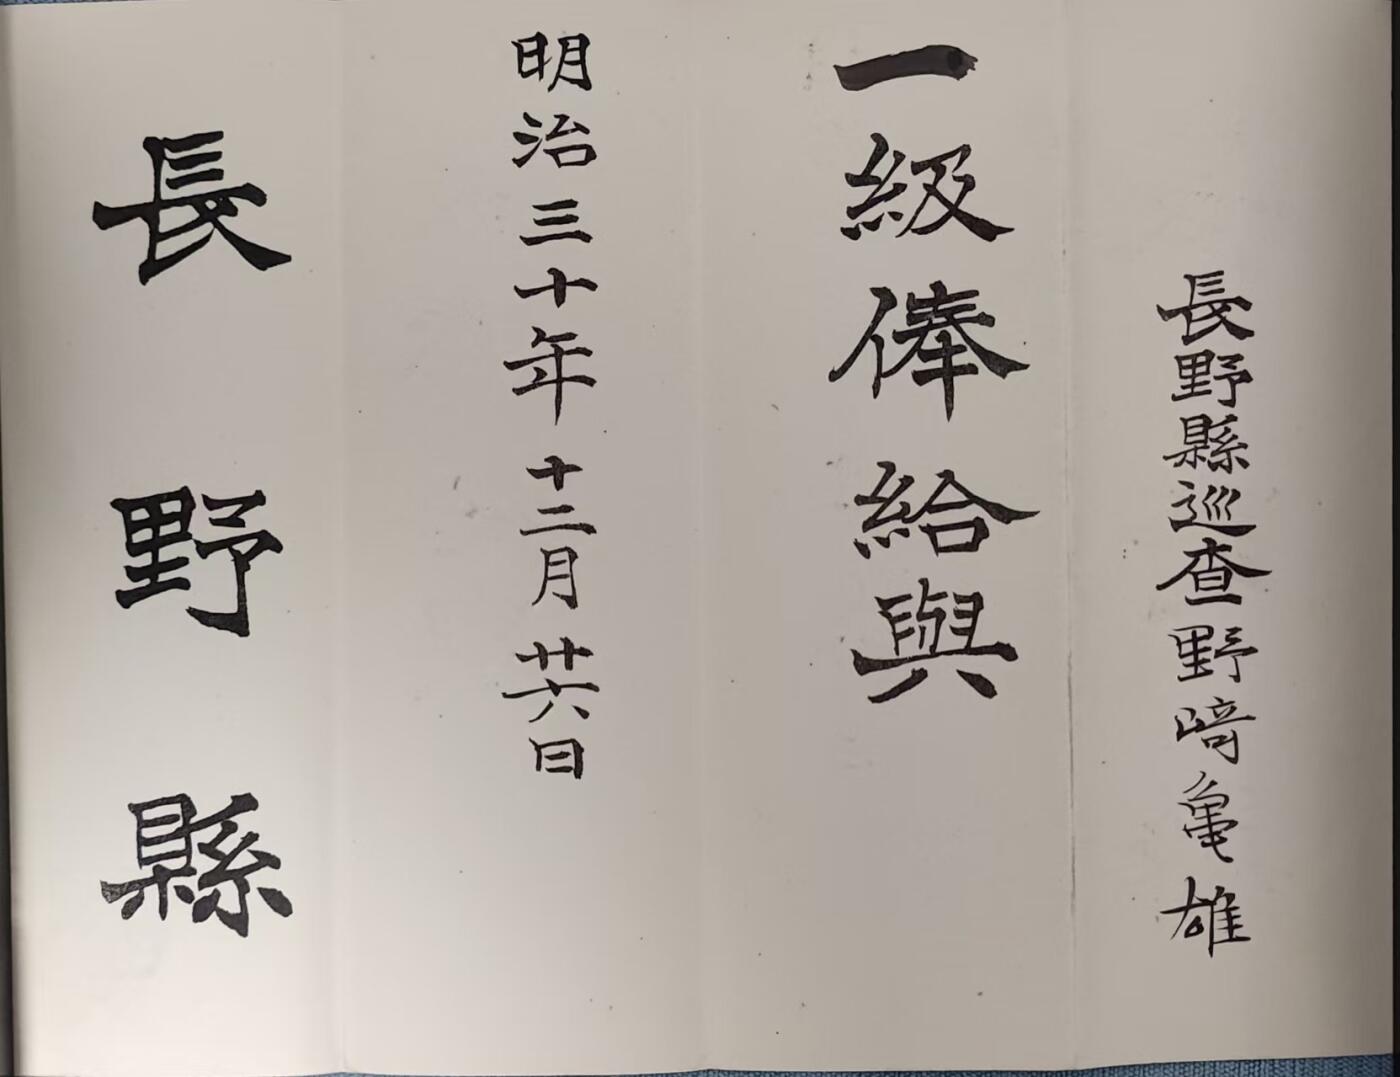 長野縣巡査野﨑亀雄
一級俸給與
明治三十年十二月廿六日
長野縣